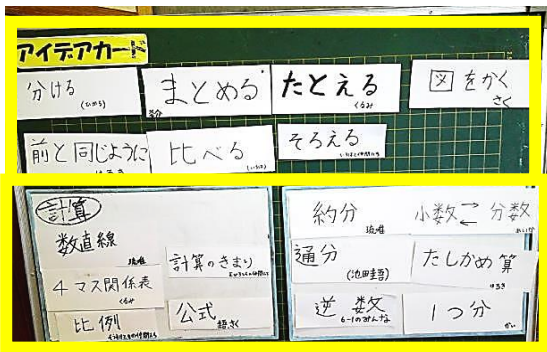 アイデアカード
分ける
(ひめろ)
まとめる
たとえる
くるみ
図をかく
さく
前と同じように
はるき
比べる
そろえる
計算
数直線
琉唯
計算のきまり
4マス関係表
くるみ
公式
比例
約分
琉唯
小数⇄分数
通分
(池田圭吾)
たしかめ算
はるき
逆数
6-1のみんな
1つ分